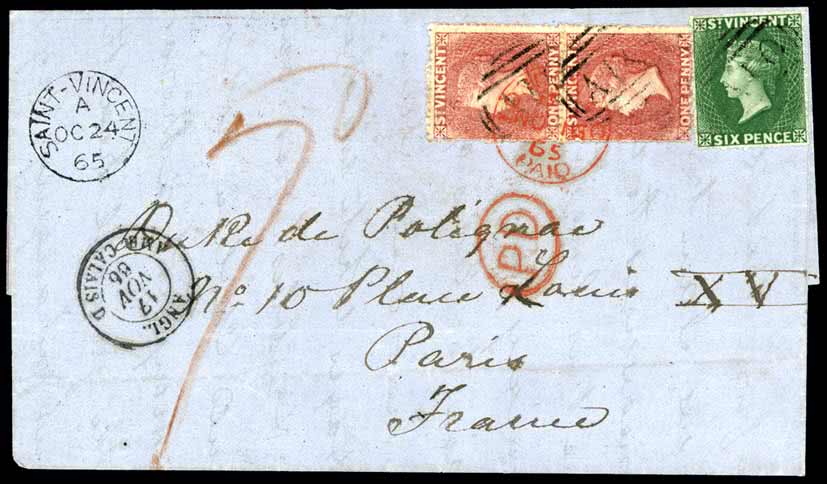 ST VINCENT
ONE PENNY
ST VINCENT
ONE PENNY
ST VINCENT
SIX PENCE
SAINT-VINCENT
A
OC 24
65
65
PAID
PD
ANGL.
AMB. CALAIS D
NOV
Duke de Polignac
No. 10 Place Louis XV
Paris
France
7